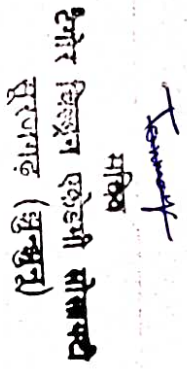 सचिव
टैगोर शिक्षण एकेडमी सोसायटी
सूरजगढ़ (झुन्झुनूं)